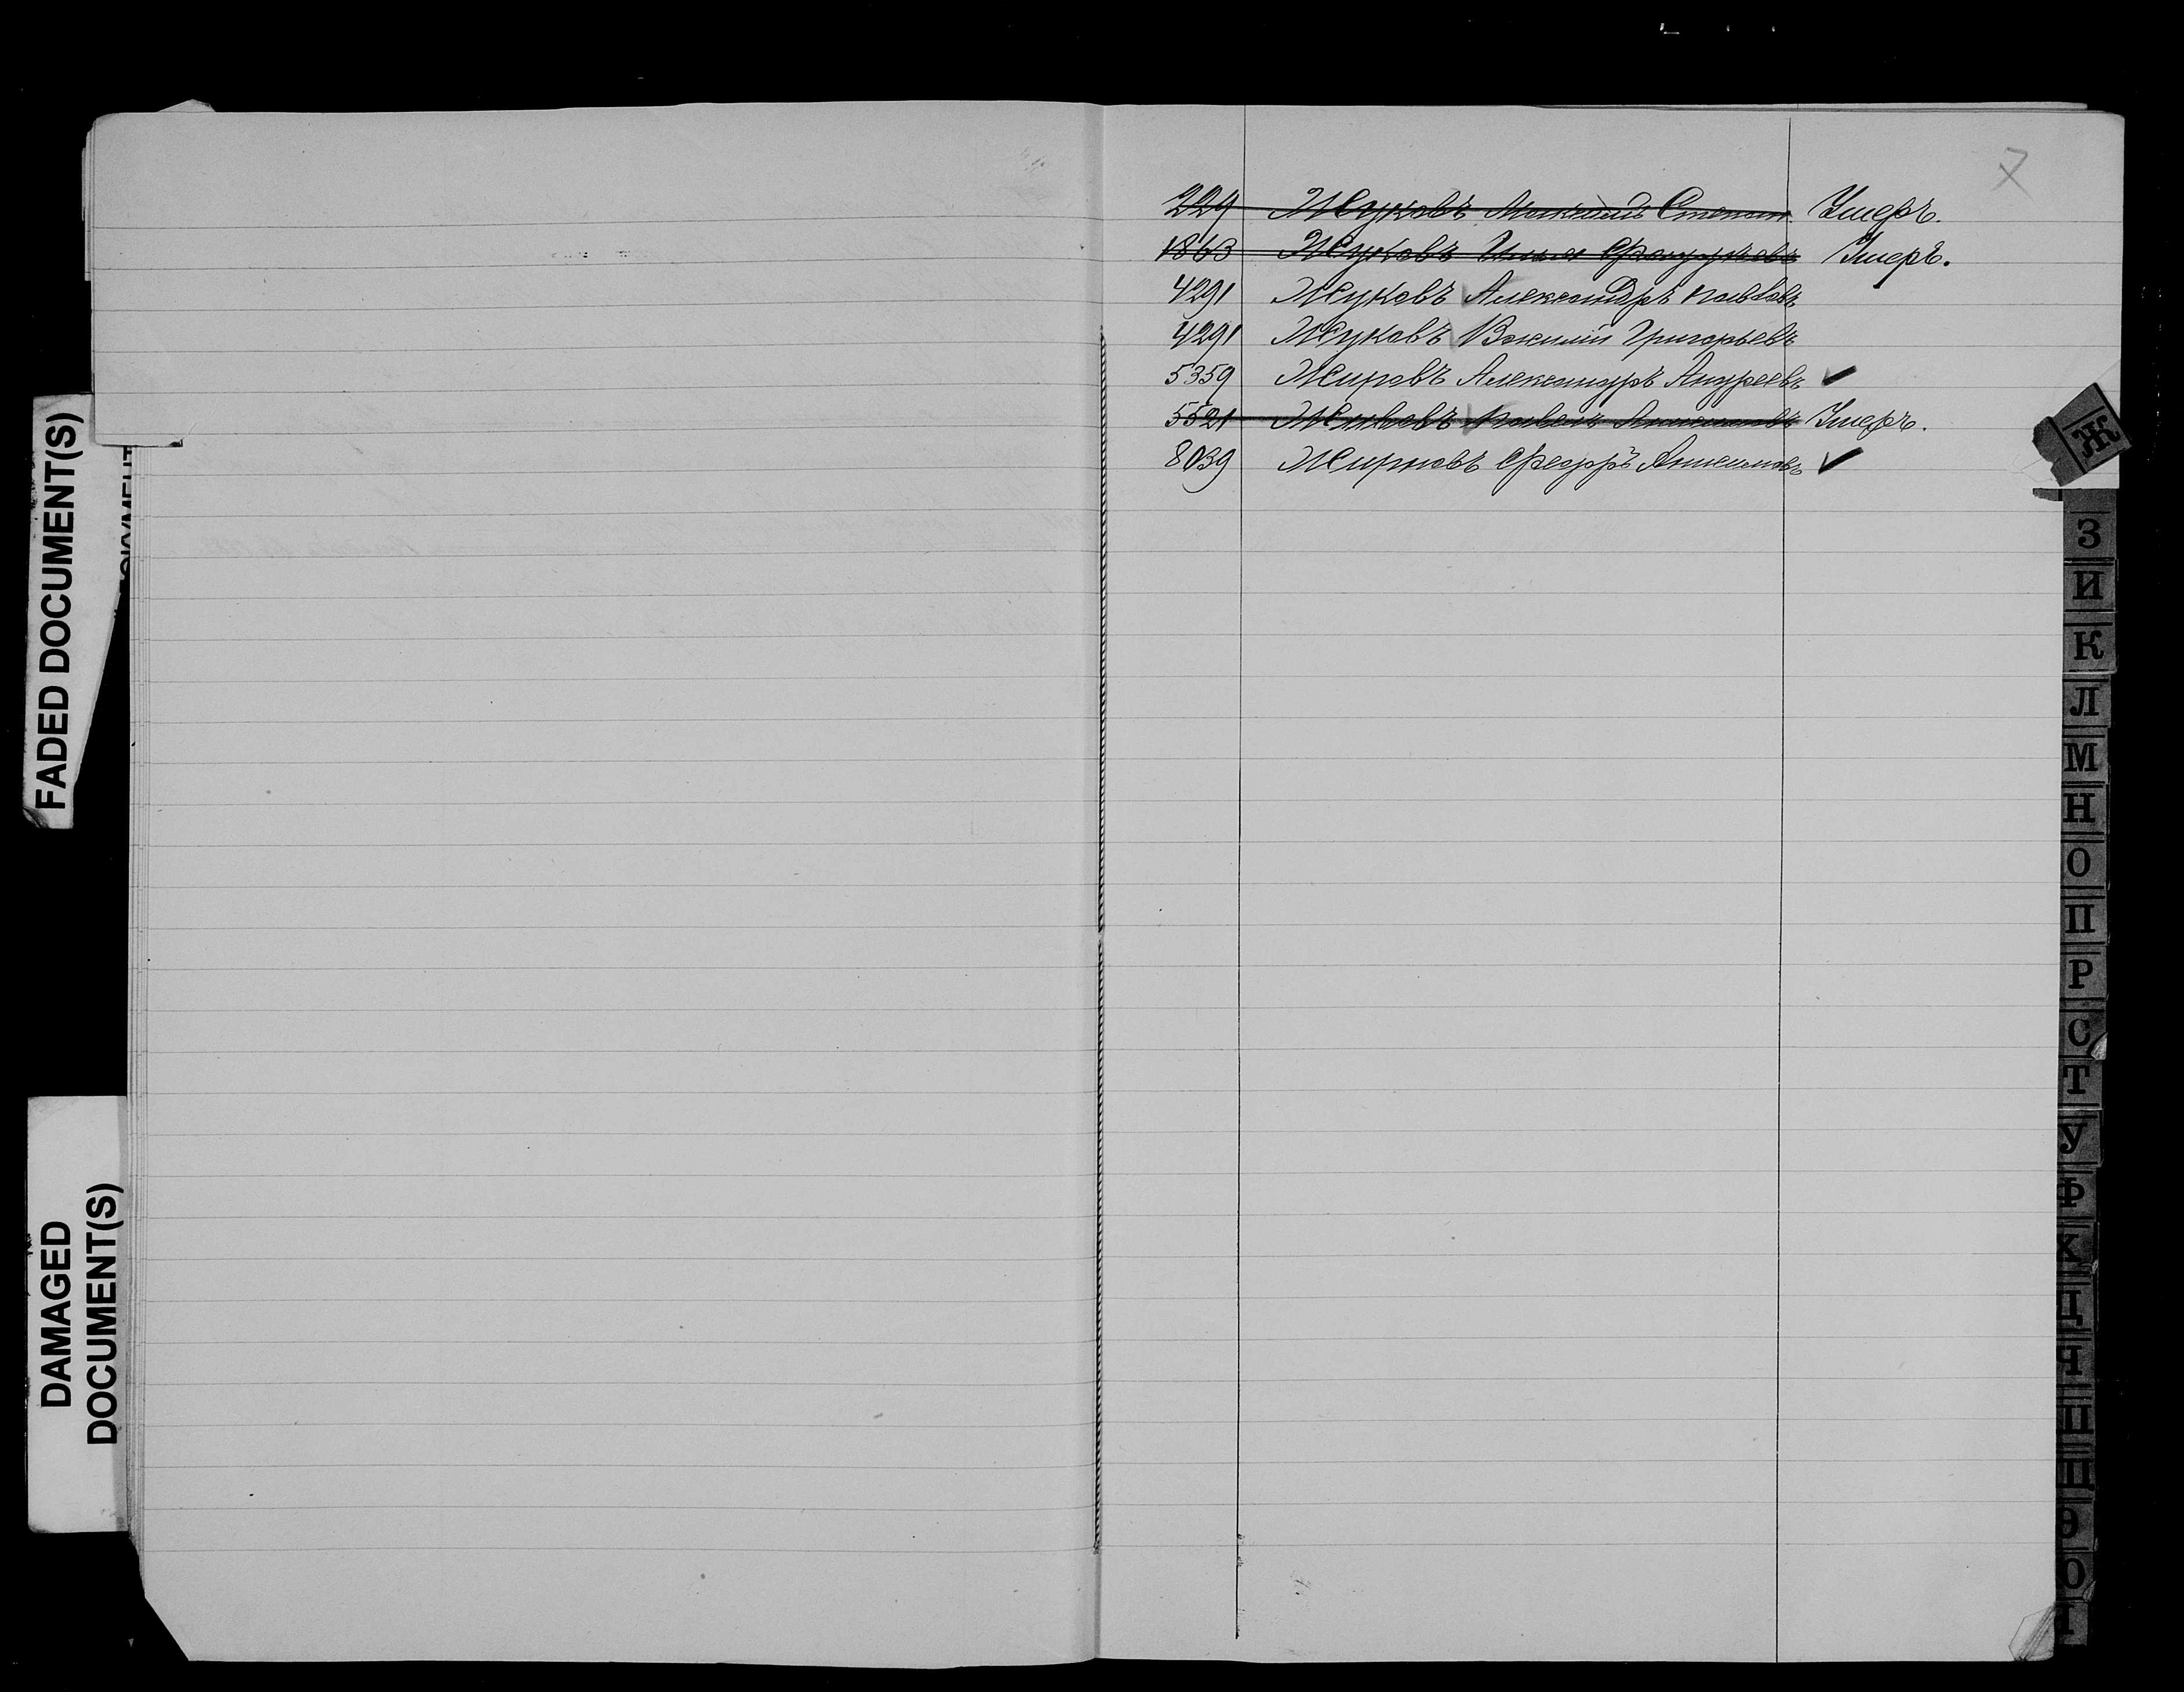 7
229 Жуковъ Михаилъ Степан. Умеръ.
1863 Жуковъ Илья Федоровъ Умеръ.
4291 Жуковъ Александръ Павловъ
4291 Жуковъ Василій Григорьевъ
5359 Жировъ Александръ Андреевъ ✓
5521 Павелъ Умеръ.
8039 Жирновъ Федоръ Анисимовъ ✓
Ж
З
И
К
Л
М
Н
О
П
Р
С
Т
У
Ф
Х
Ц
Ч
FADED DOCUMENT(S)
DAMAGED
DOCUMENT(S)